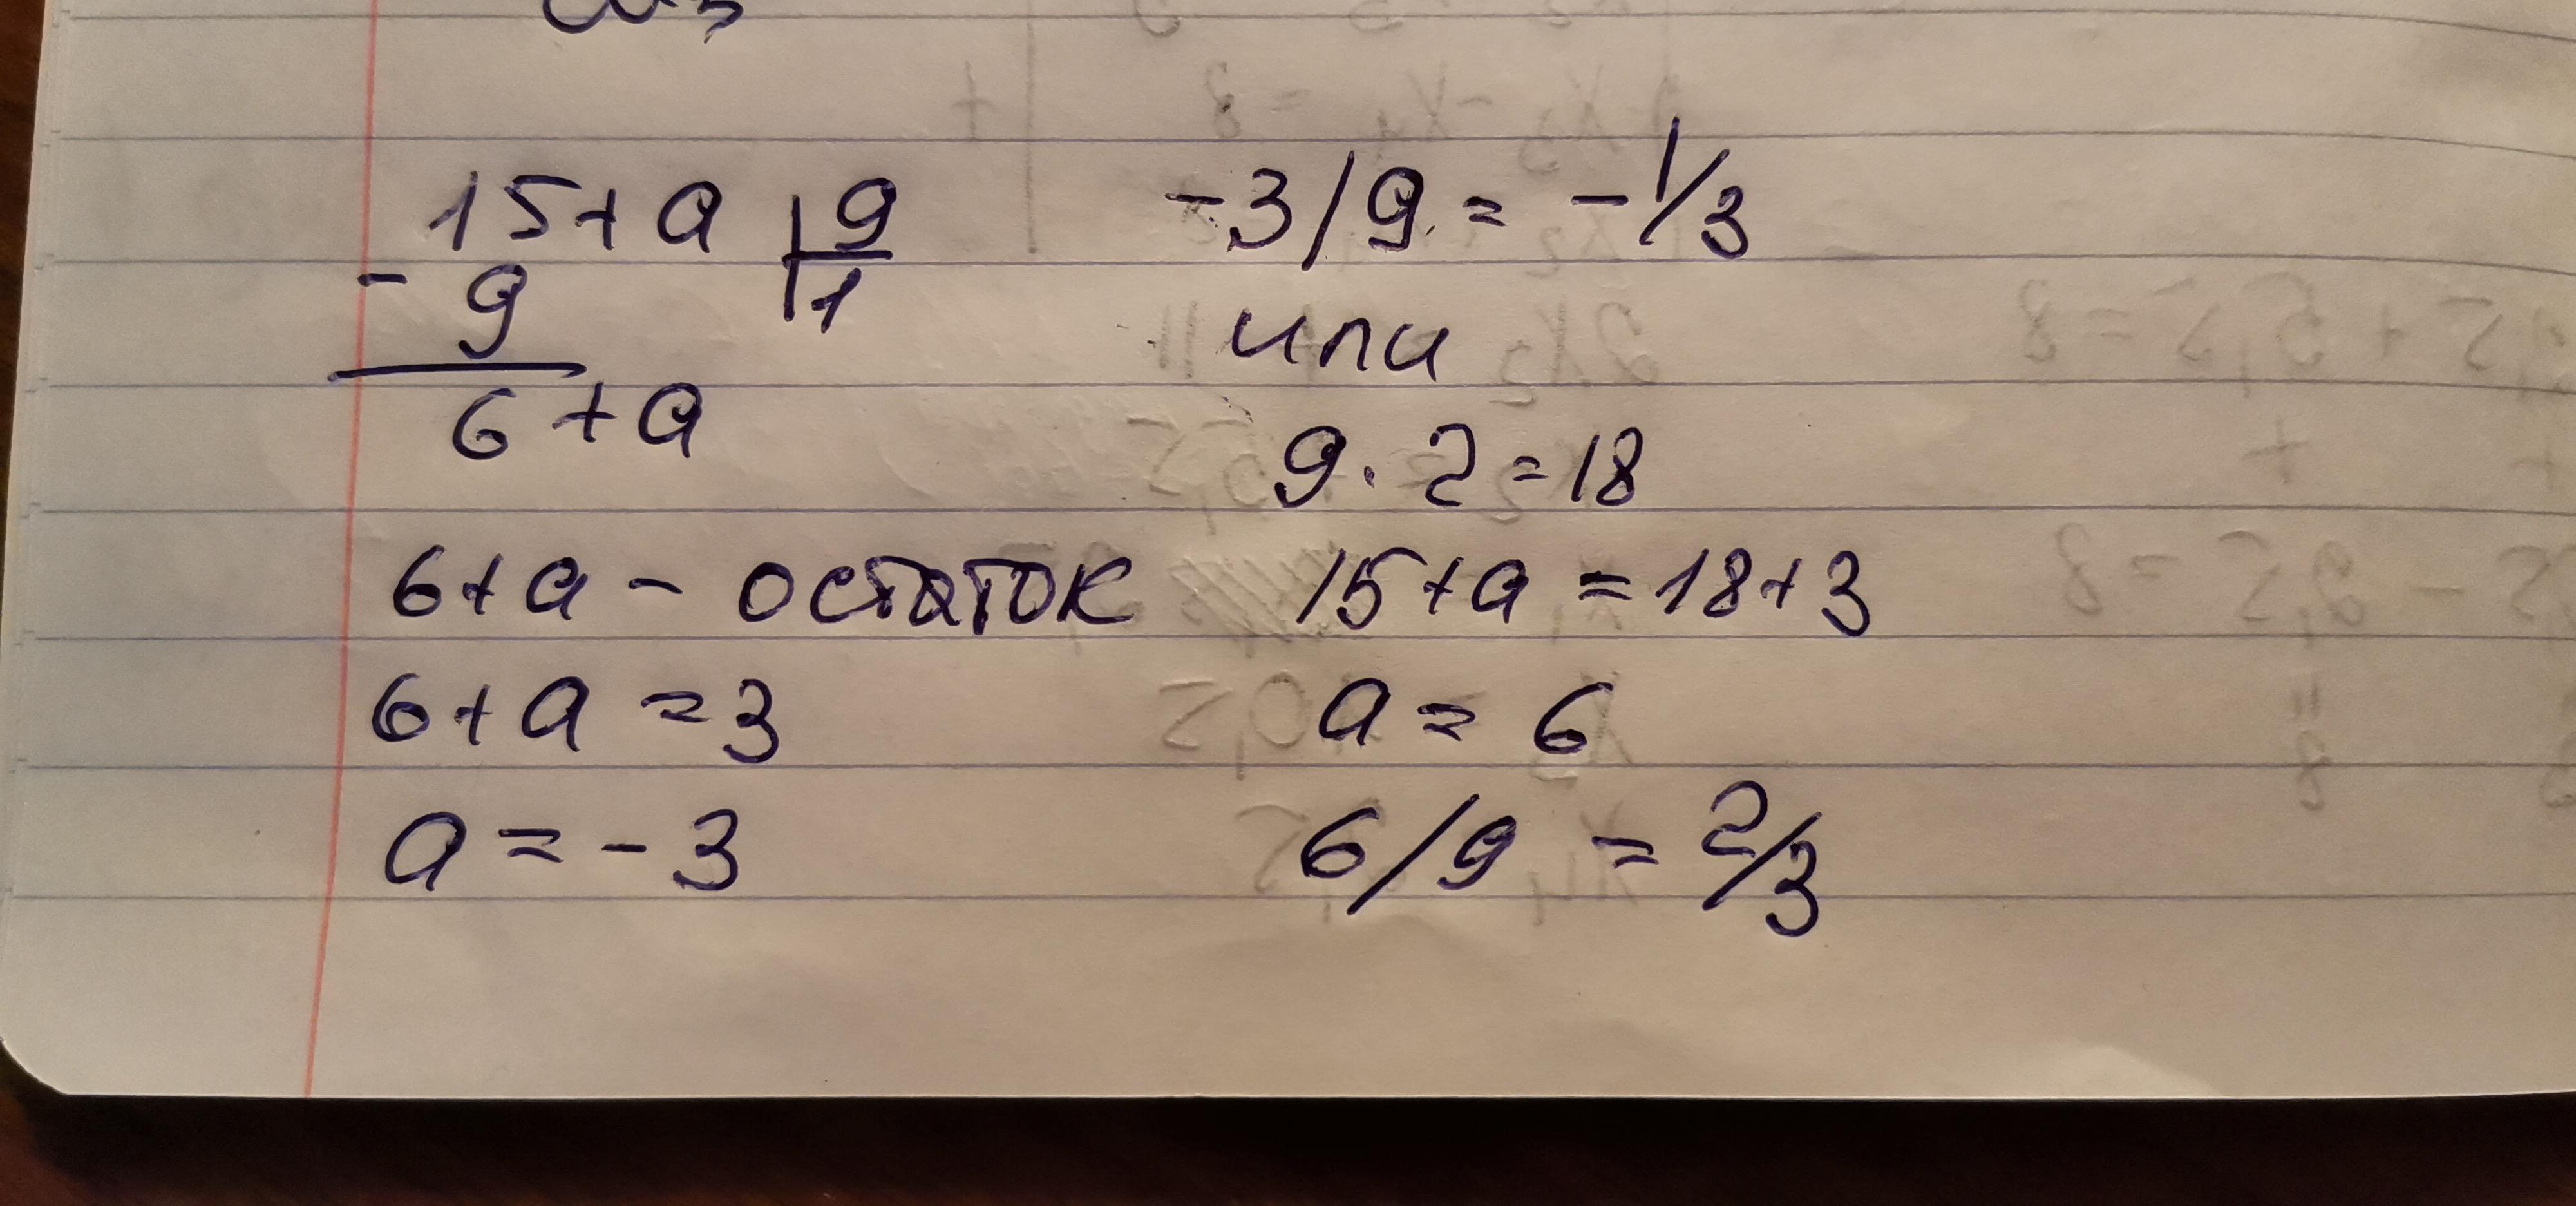 15 + a | 9
- 9 | 1
6 + a
6 + a - остаток
6 + a = 3
a = - 3
- 3 / 9 = - 1/3
или
9 · 2 = 18
15 + a = 18 + 3
a = 6
6 / 9 = 2/3